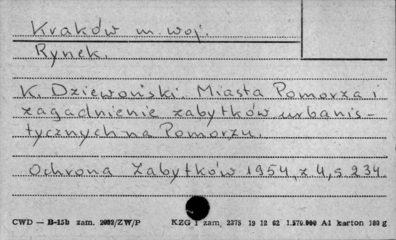 Kraków m. woj.
Rynek.
K. Dziewoński Miasta Pomorza i
zagadnienie zabytków urbanis-
tycznych na Pomorzu.
Ochrona Zabytków 1954, z 4, s 234.
CWD — B-15b zam. 2082/ZW/P KZG 1 zam, 2375 19 12 62 1.570.000 A1 karton 180 g